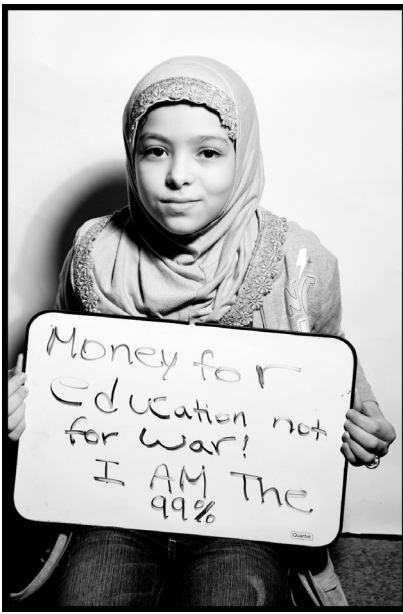 Money for
education not
for war!
I AM The
99%
Quartet